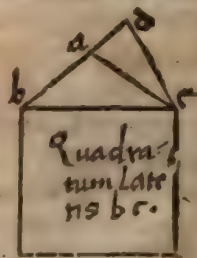 d
a
b
c
Quadra-
tum Late
ris b c.